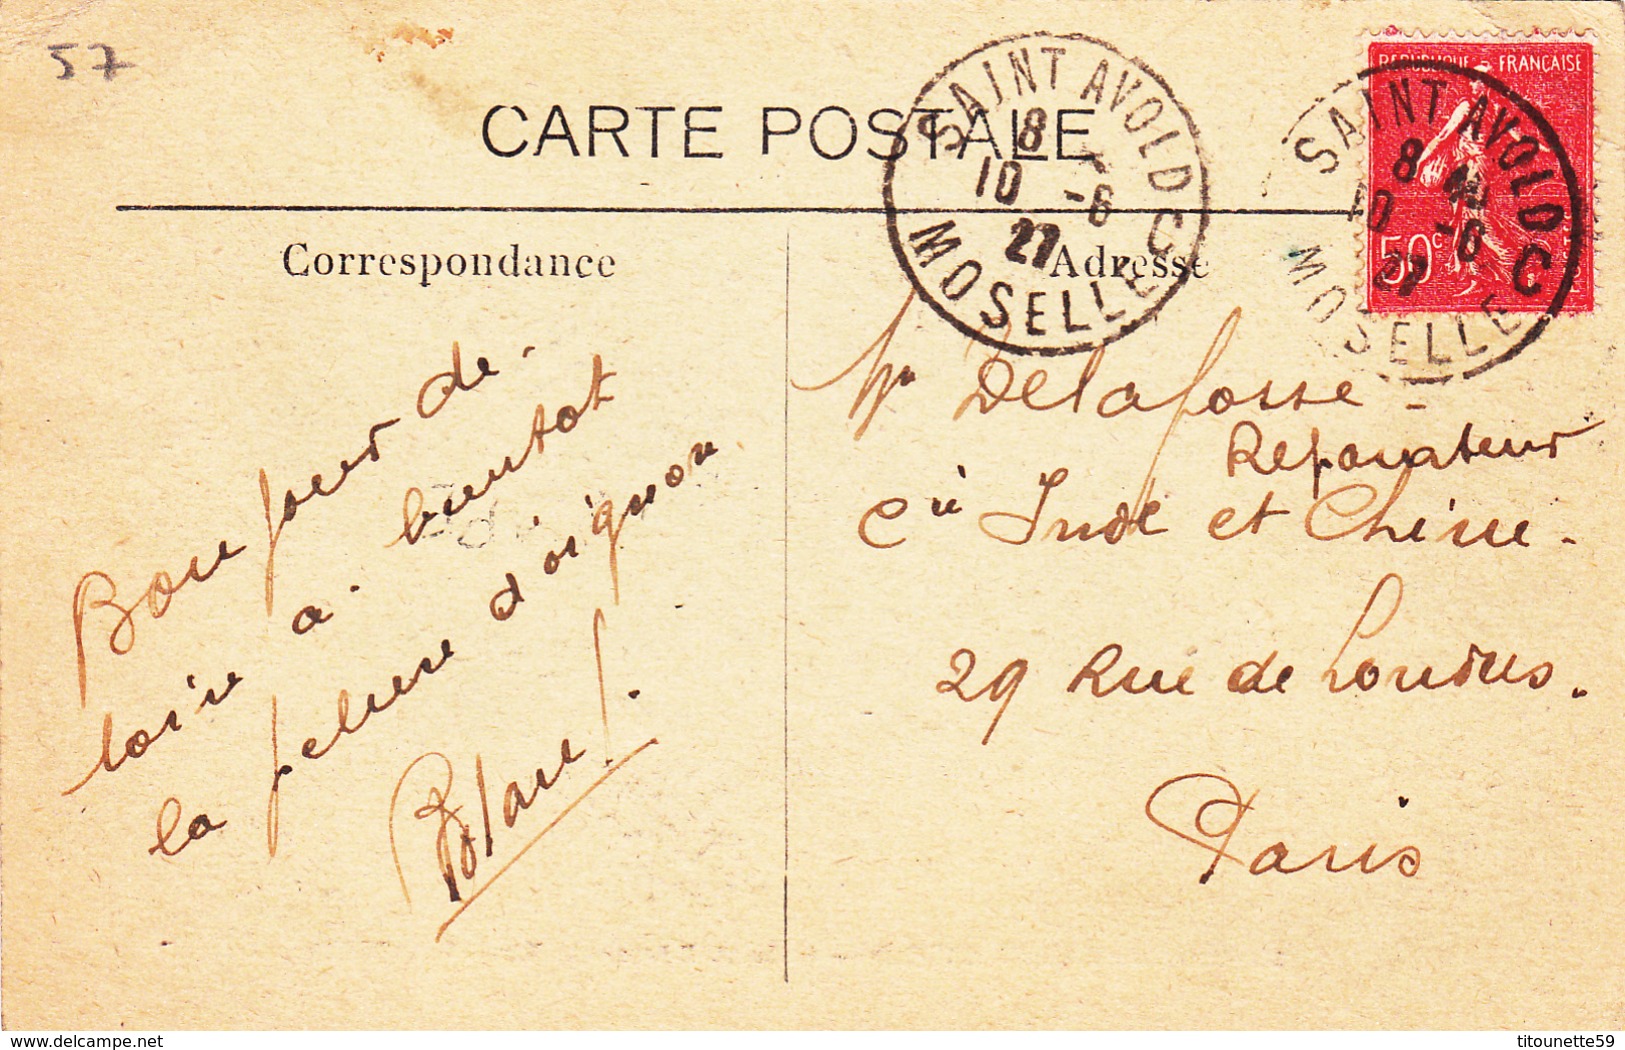 57
CARTE POSTALE
SAINT AVOLD
8
10 -6
27
MOSELLE C
REPUBLIQUE FRANÇAISE
50c
SAINT AVOLD
8
10 -6
27
MOSELLE C
Correspondance
Adresse
Bonjour de
loin a bientot
la pelure d'oignon
Mr Delafosse -
Réparateur
Cie Inde et Chine.
29 Rue de Londres.
Paris
delcampe.net
titounette59